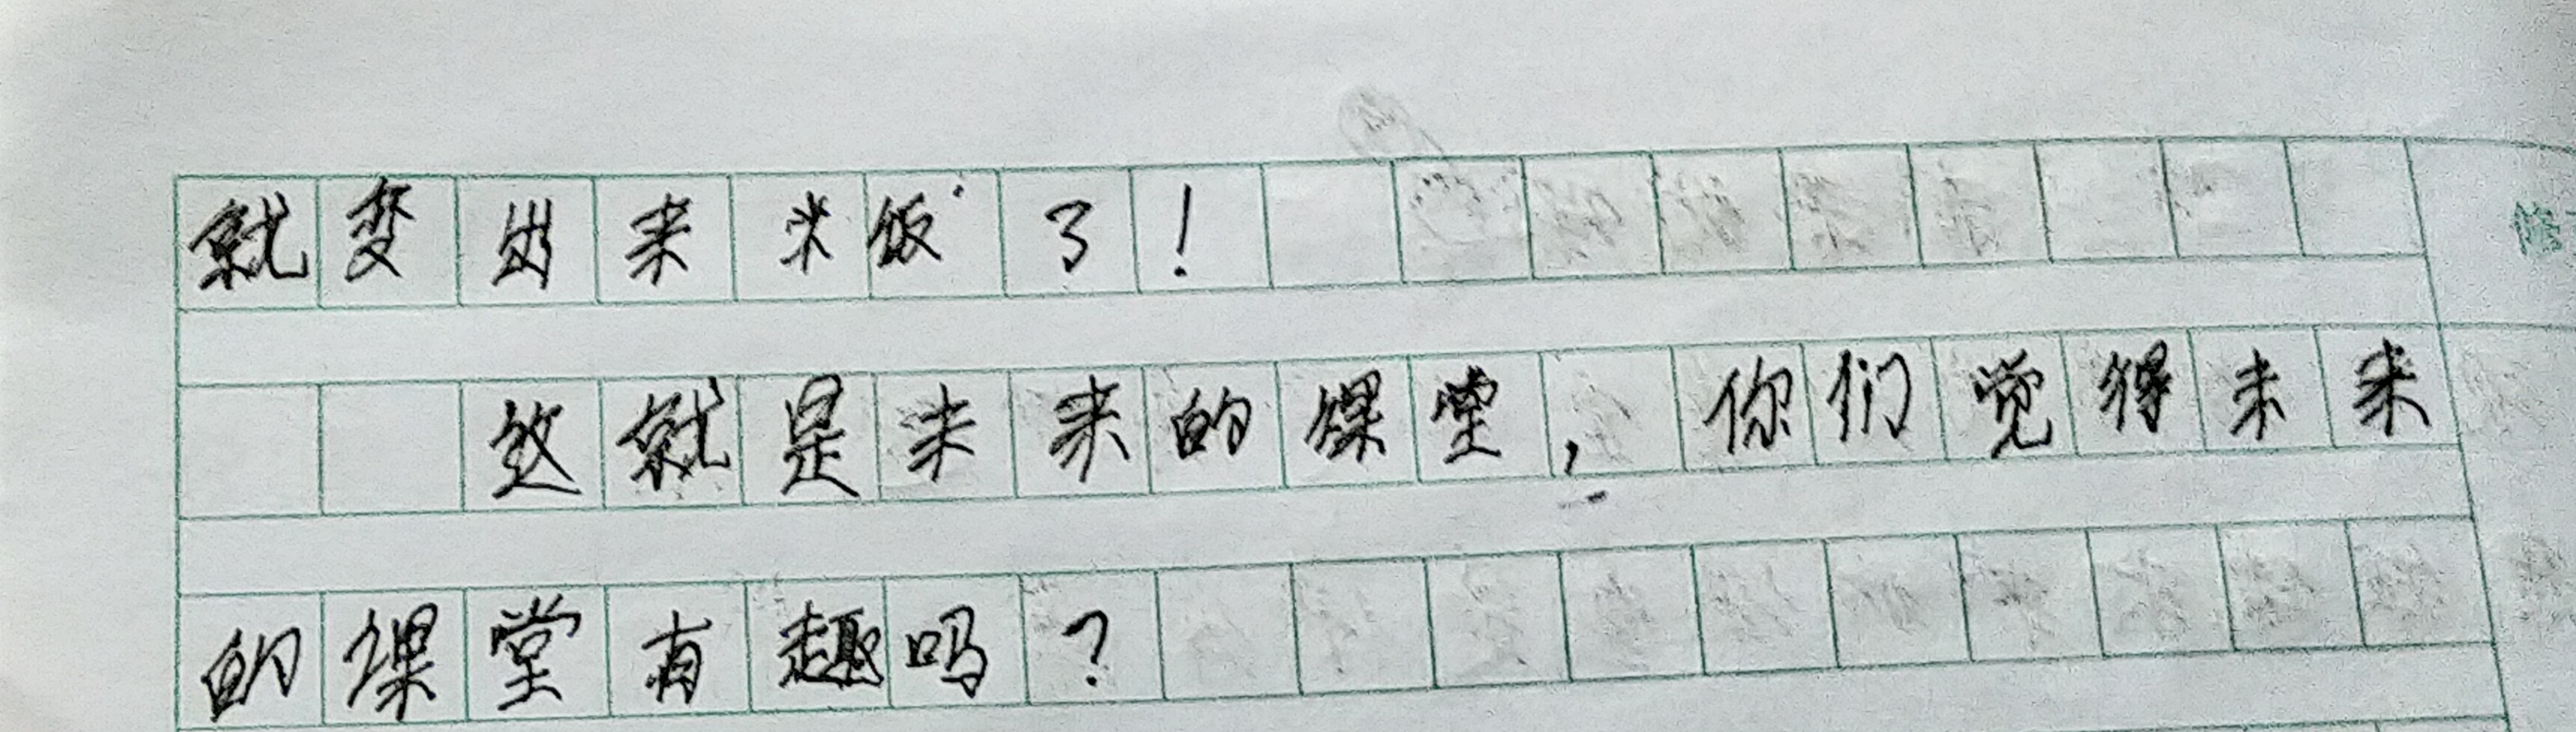 就变出来米饭了！
这就是未来的课堂，你们觉得未来
的课堂有趣吗？